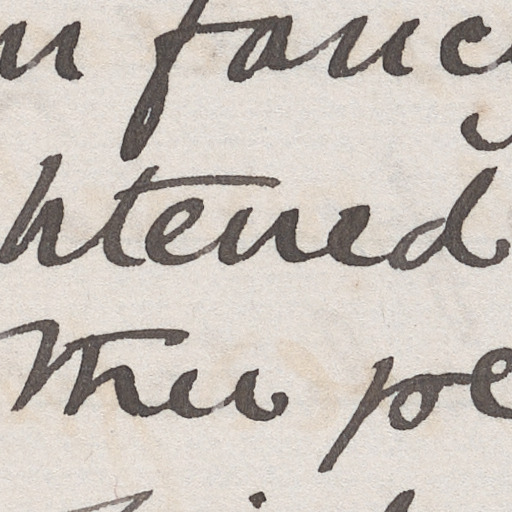 n fancy
htened
Then pe